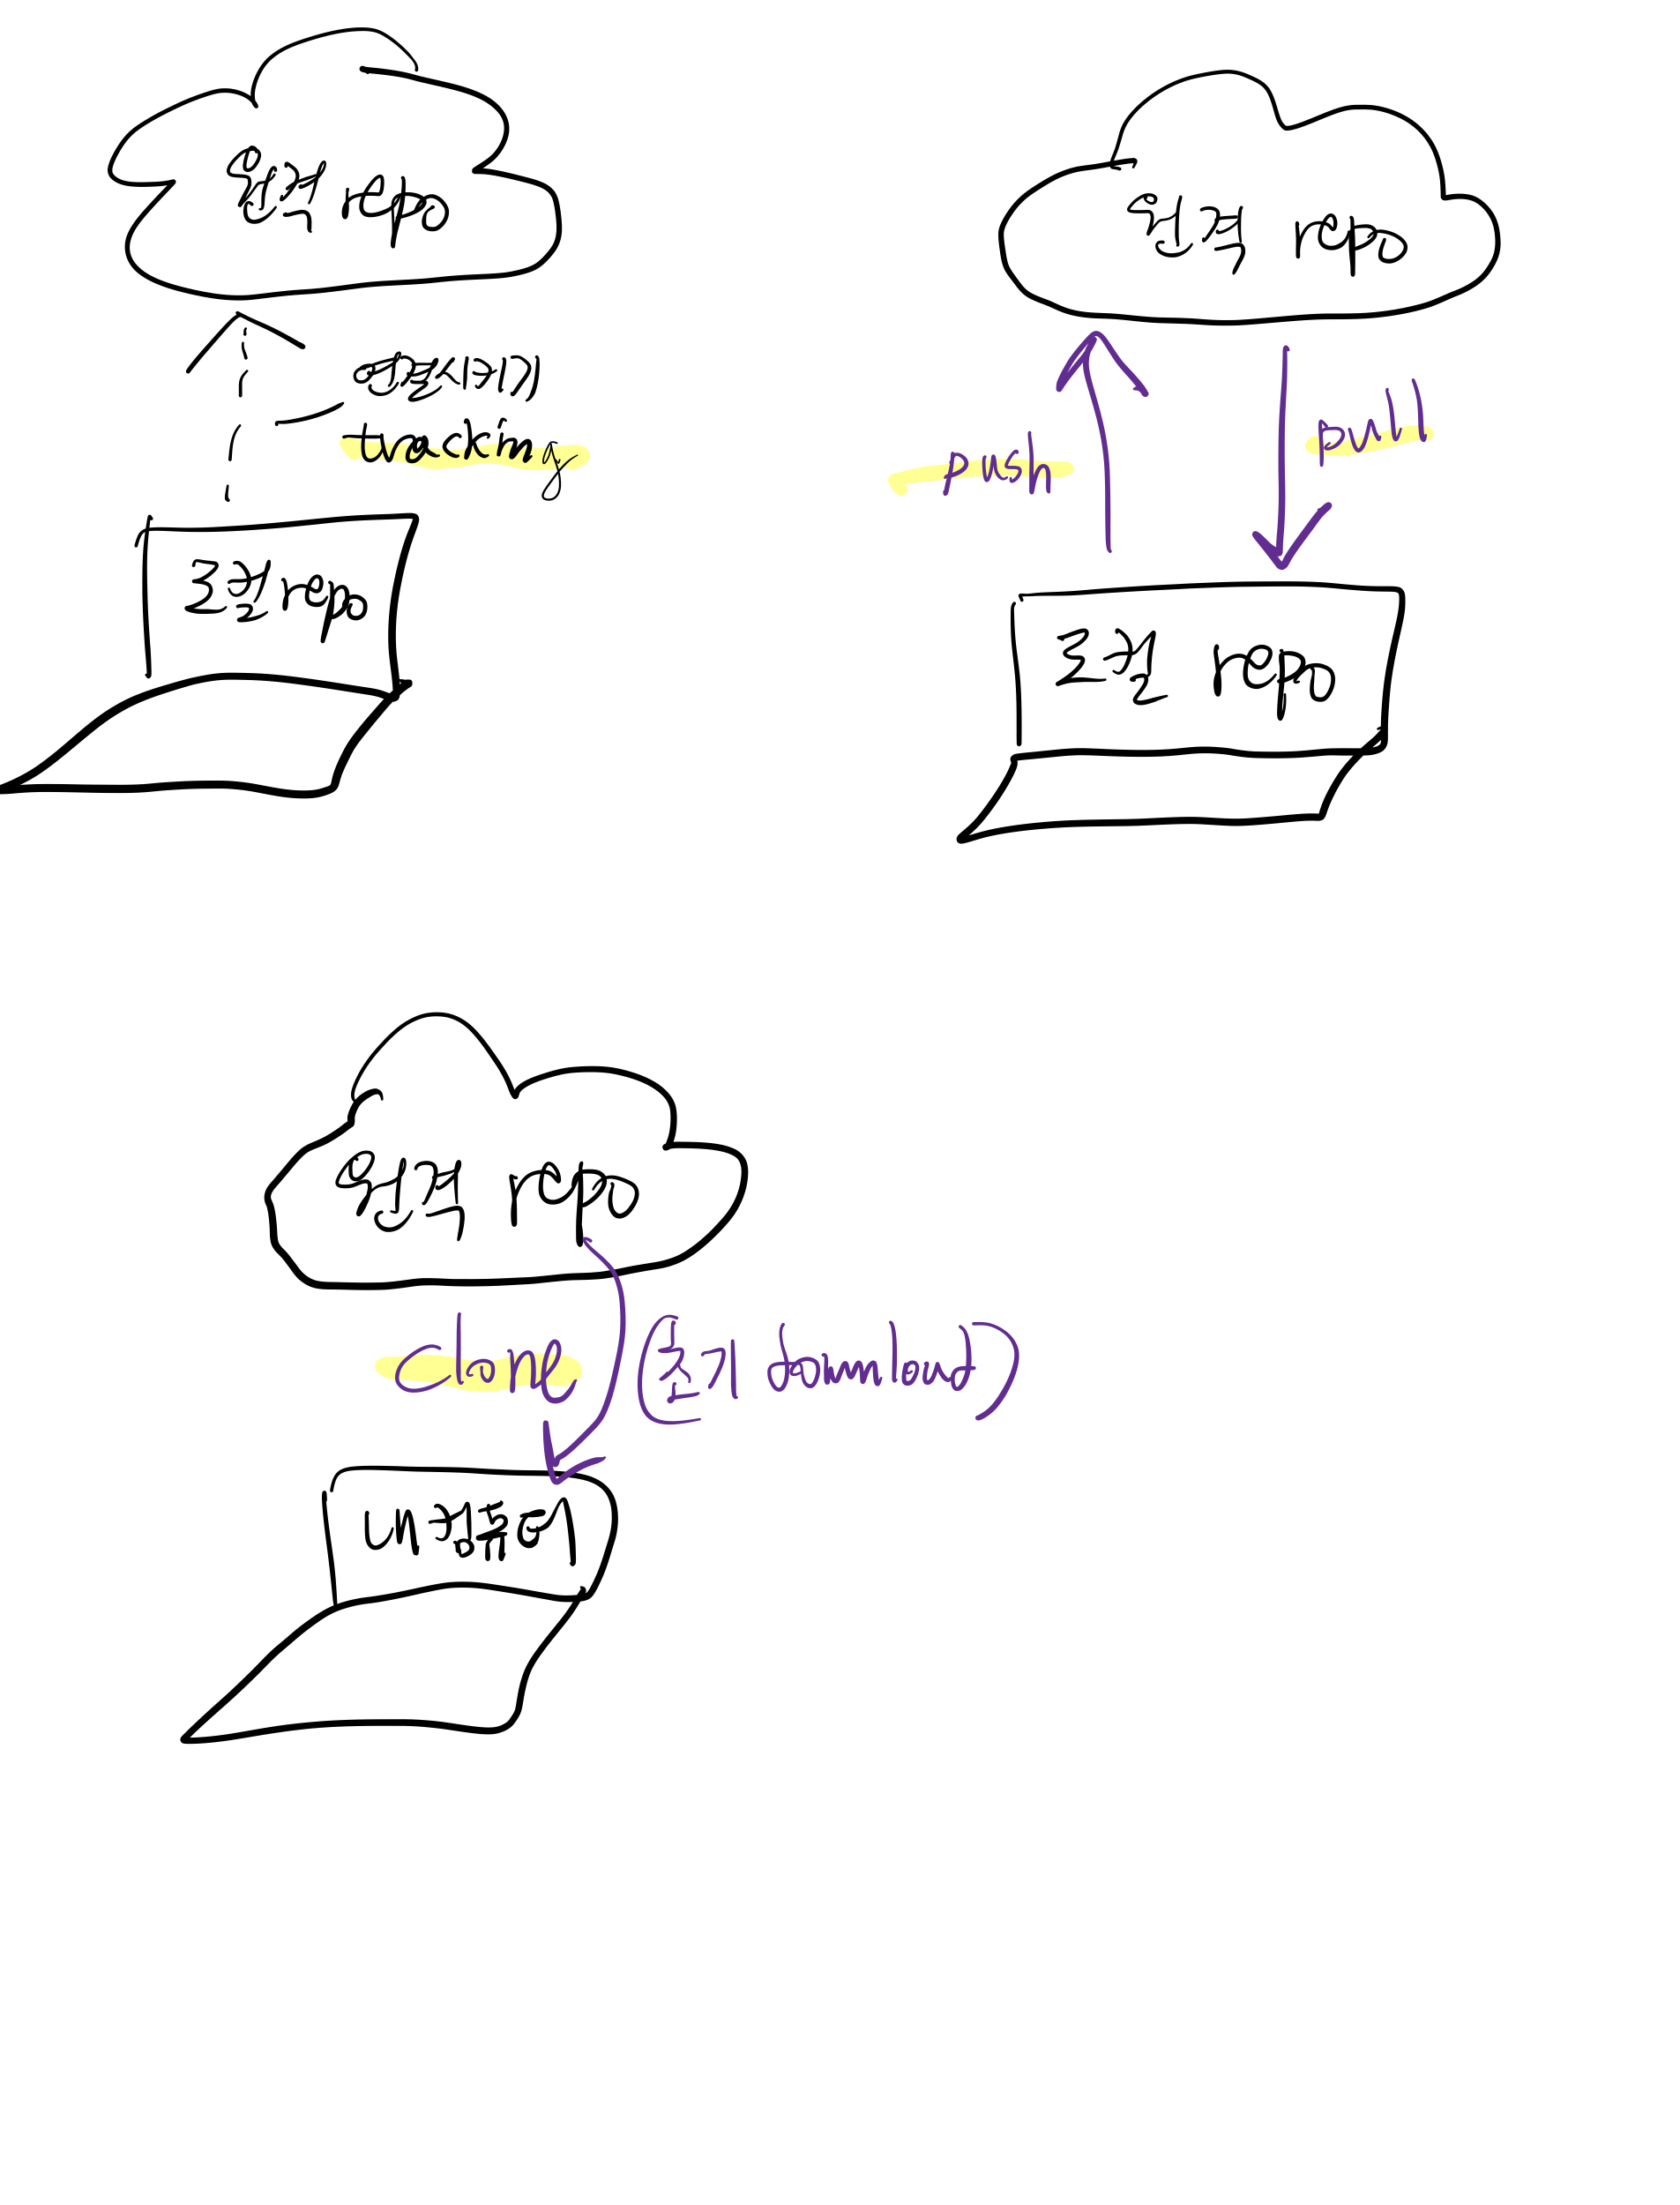 원격 repo
연동시키기
tracking
로컬 repo
원격 repo
push
pull
로컬 repo
원격 repo
clone
(초기 download)
내 컴퓨터